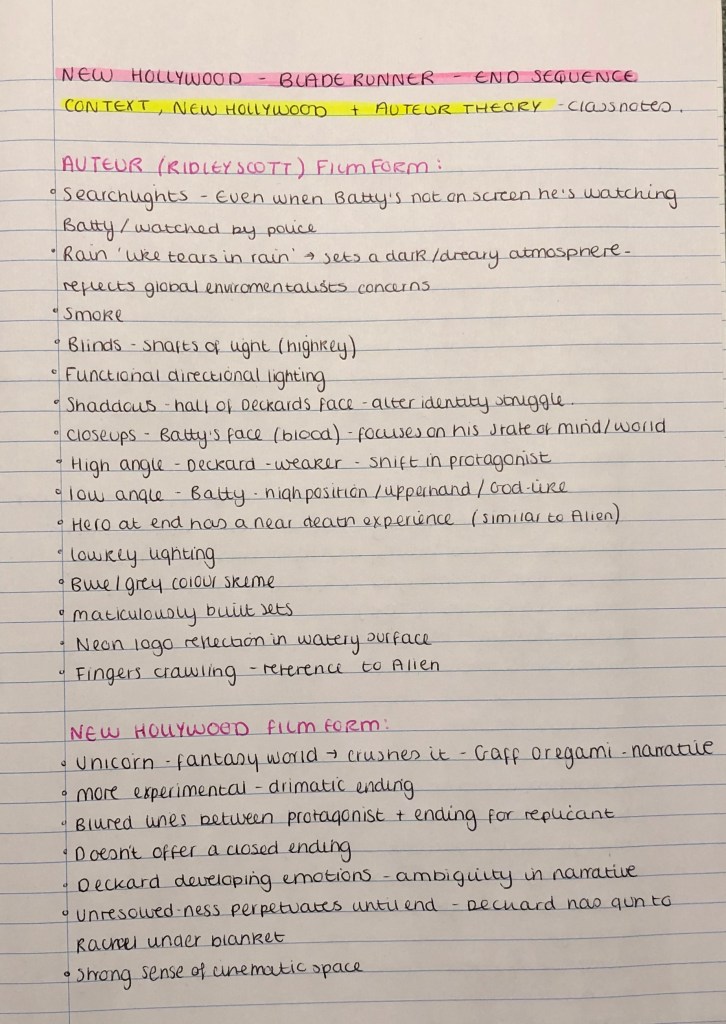 NEW HOLLYWOOD - BLADE RUNNER - END SEQUENCE
CONTEXT, NEW HOLLYWOOD + AUTEUR THEORY - Classnotes.
AUTEUR (RIDLEY SCOTT) FILM FORM:
• Searchlights - Even when Batty's not on screen he's watching
Batty/watched by police
• Rain 'like tears in rain' → sets a dark/dreary atmosphere -
reflects global enviromentalists concerns
• Smoke
• Blinds - shafts of light (highkey)
• Functional directional lighting
• Shaddows - half of Deckards face - alter identity struggle.
• closeups - Batty's face (blood) - focuses on his state of mind/world
• High angle - Deckard - weaker - shift in protagonist
• low angle - Batty - high position/upperhand/God-like
• Hero at end has a near death experience (similar to Alien)
• lowkey lighting
• Blue/grey colour skeme
• maticulously built sets
• Neon logo reflection in watery surface
• Fingers crawling - reference to Alien
NEW HOLLYWOOD FILM FORM:
• Unicorn - fantasy world → crushes it - Gaff oregami - narrative
• more experimental - drimatic ending
• Blured lines between protagonist + ending for replicant
• Doesn't offer a closed ending
• Deckard developing emotions - ambiguity in narrative
• unresolved-ness perpetuates until end - Deckard has gun to
Rachel under blanket
• Strong sense of cinematic space